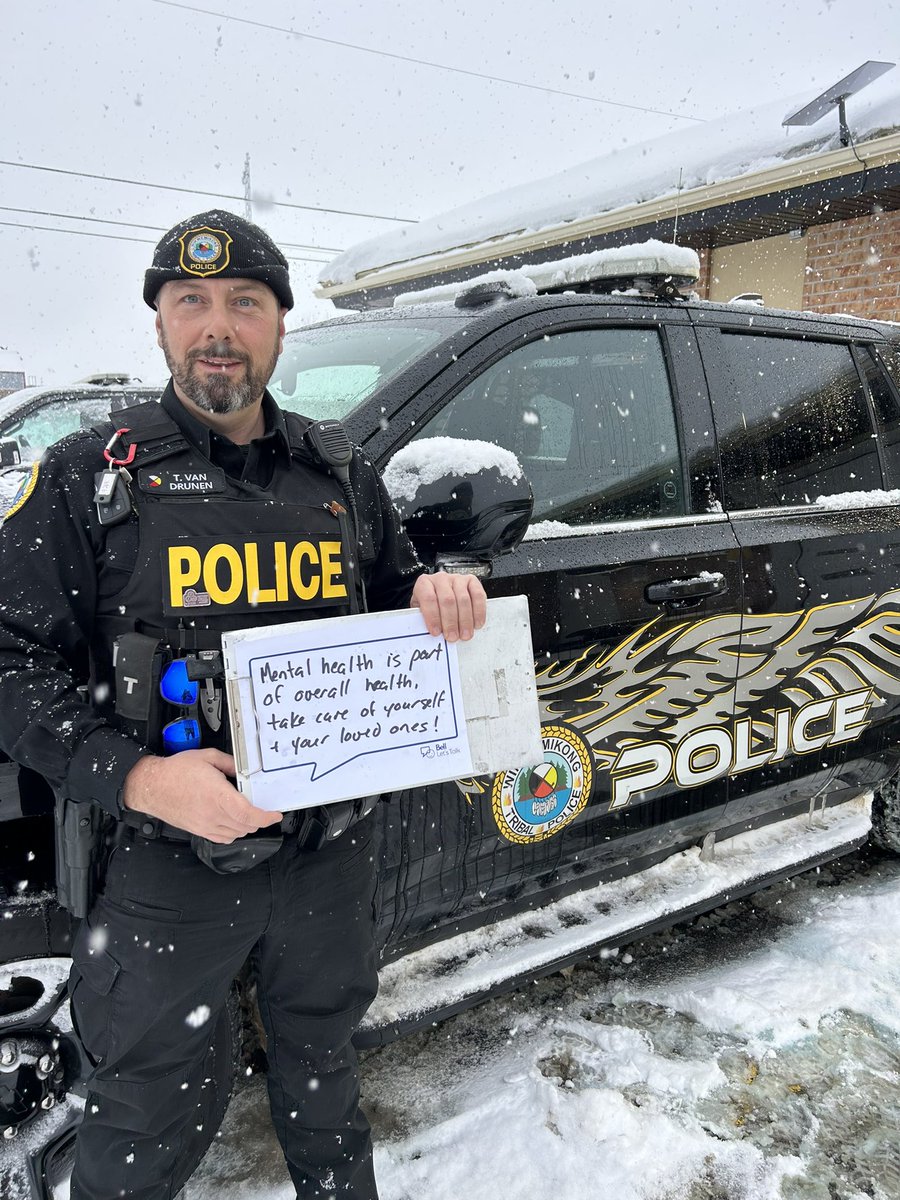 POLICE
T. VAN
DRUNEN
POLICE
T
Mental health is part
of overall health,
take care of yourself
+ your loved ones!
Bell
Let's Talk
POLICE
TRIBAL POLICE